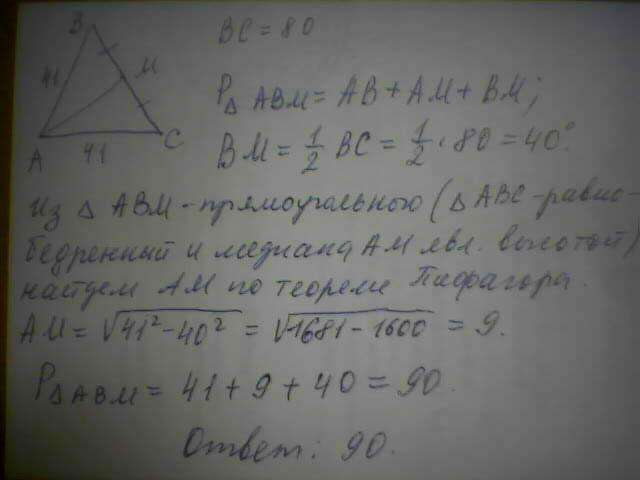 B
BC = 80
41
M
A
41
C
P△ ABM = AB + AM + BM;
BM = 1/2 BC = 1/2 · 80 = 40°.
Из △ ABM - прямоугольного (△ ABC - равно-
бедренный и медиана AM явл. высотой)
найдем AM по теореме Пифагора.
AM = √41² - 40² = √1681 - 1600 = 9.
P△ABM = 41 + 9 + 40 = 90.
Ответ: 90.